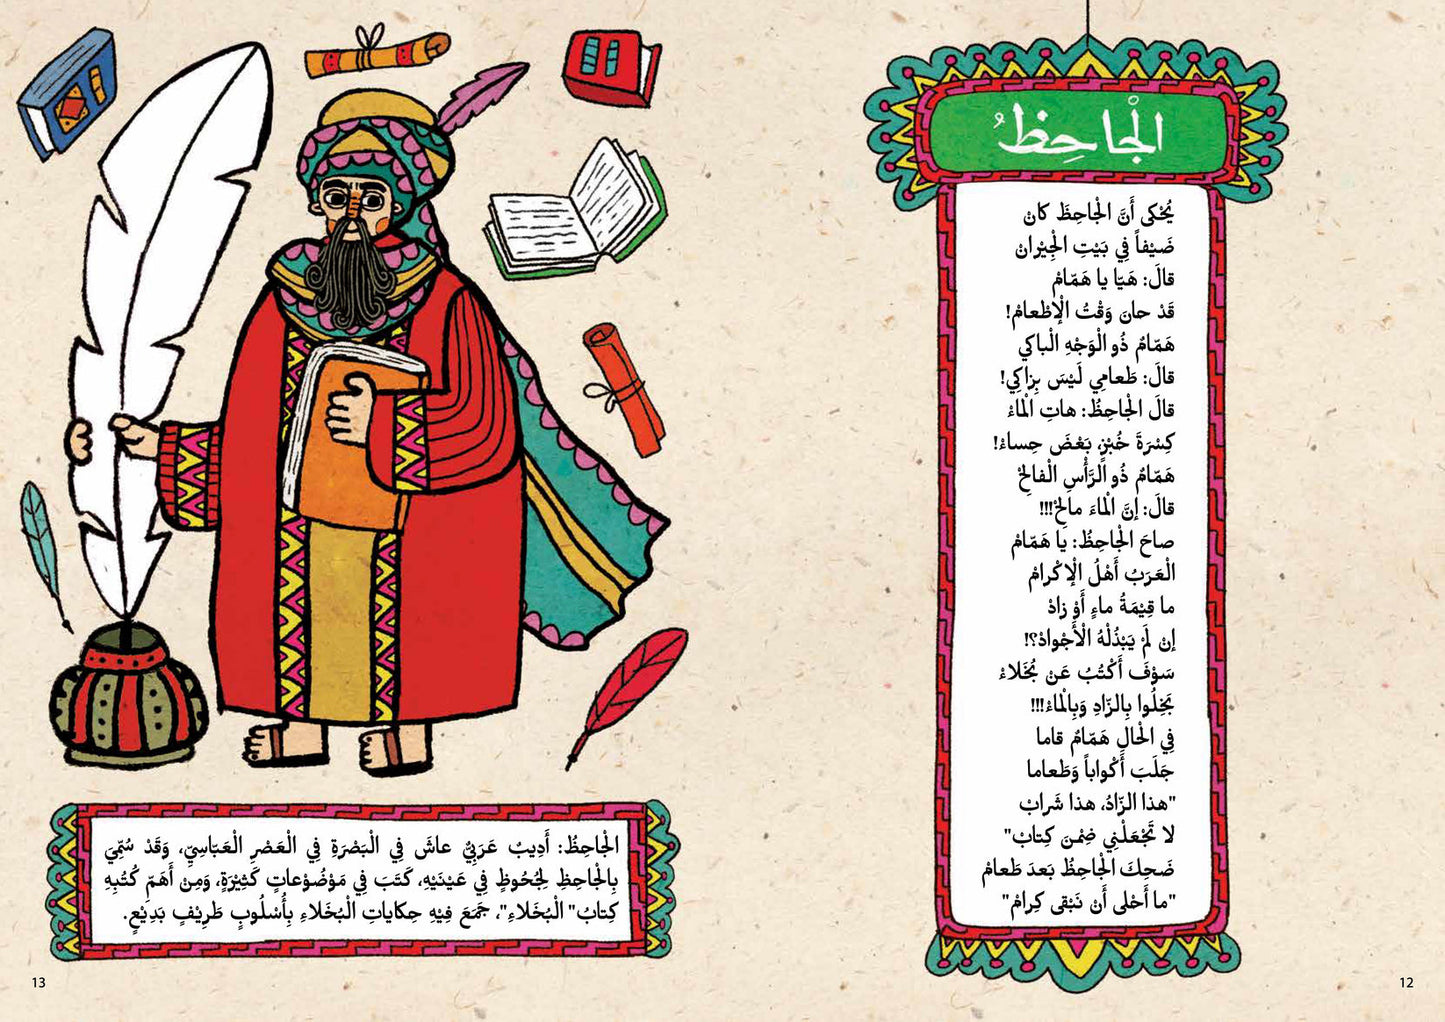 الْجاحِظُ
يُحْكى أَنَّ الْجاحِظَ كانْ
ضَيْفاً فِي بَيْتِ الْجِيْرانْ
قالَ: هَيّا يا هَمّامْ
قَدْ حانَ وَقْتُ الْإطْعامْ!
هَمّامٌ ذُو الْوَجْهِ الْباكي
قالَ: طَعامِي لَيْسَ بِزاكِي!
قالَ الْجاحِظُ: هاتِ الْماءْ
كِسْرَةَ خُبْزٍ بَعْضَ حِساءْ!
هَمّامٌ ذُو الرَّأْسِ الْفالِحْ
قالَ: إنَّ الْماءَ مالِحْ!!!
صاحَ الْجاحِظُ: يا هَمّامْ
الْعَرَبُ أَهْلُ الْإكْرامْ
ما قِيْمَةُ ماءٍ أَوْ زادْ
إنْ لَمْ يَبْذُلْهُ الْأَجْوادْ؟!
سَوْفَ أَكْتُبُ عَنْ بُخَلاءْ
بَخِلُوا بِالزّادِ وَبِالْماءْ!!!
فِي الْحالِ هَمّامٌ قاما
جَلَبَ أَكْواباً وَطَعاما
"هذا الزّادُ، هذا شَرابْ
لا تَجْعَلْنِي ضِمْنَ كِتابْ"
ضَحِكَ الْجاحِظُ بَعدَ طَعامْ
"ما أَحْلى أَنْ نَبْقى كِرامْ"
12
الْجاحِظُ: أَدِيبٌ عَرَبِيٌّ عاشَ فِي الْبَصْرَةِ فِي الْعَصْرِ الْعَبّاسِيِّ، وَقَدْ سُمِّيَ
بِالْجاحِظِ لِجُحُوظٍ فِي عَيْنَيْهِ، كَتَبَ فِي مَوْضُوْعاتٍ كَثِيْرَةٍ، وَمِنْ أَهَمِّ كُتُبِهِ
كِتابُ" الْبُخَلاءِ"، جَمَعَ فِيْهِ حِكاياتِ الْبُخَلاءِ بِأُسْلُوبٍ طَرِيْفٍ بَدِيْعٍ.
13